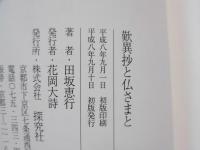 歎異抄と仏さまと
平成八年九月一日 初版印刷
平成八年九月十日 初版発行
著者・田坂恵行
発行者・花岡大詩
発行所・株式会社 探究社
京都市下京区七条通
電話〇七五―三四三―